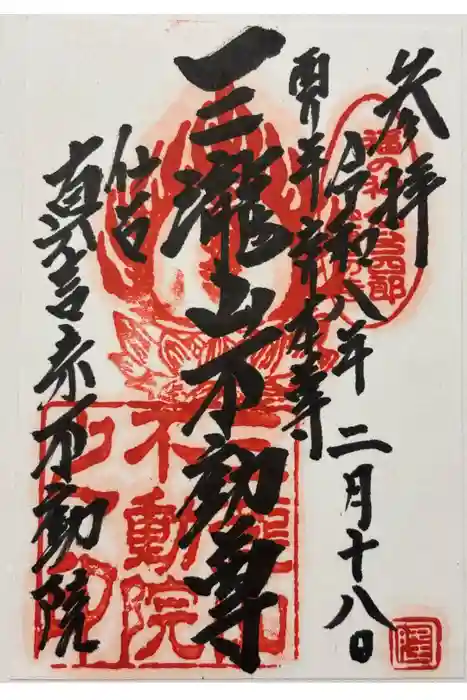 参拝
令和八年二月十八日
酉年守本尊
三瀧山不動尊
仙台
真言宗不動院
三瀧山
不動院
隆